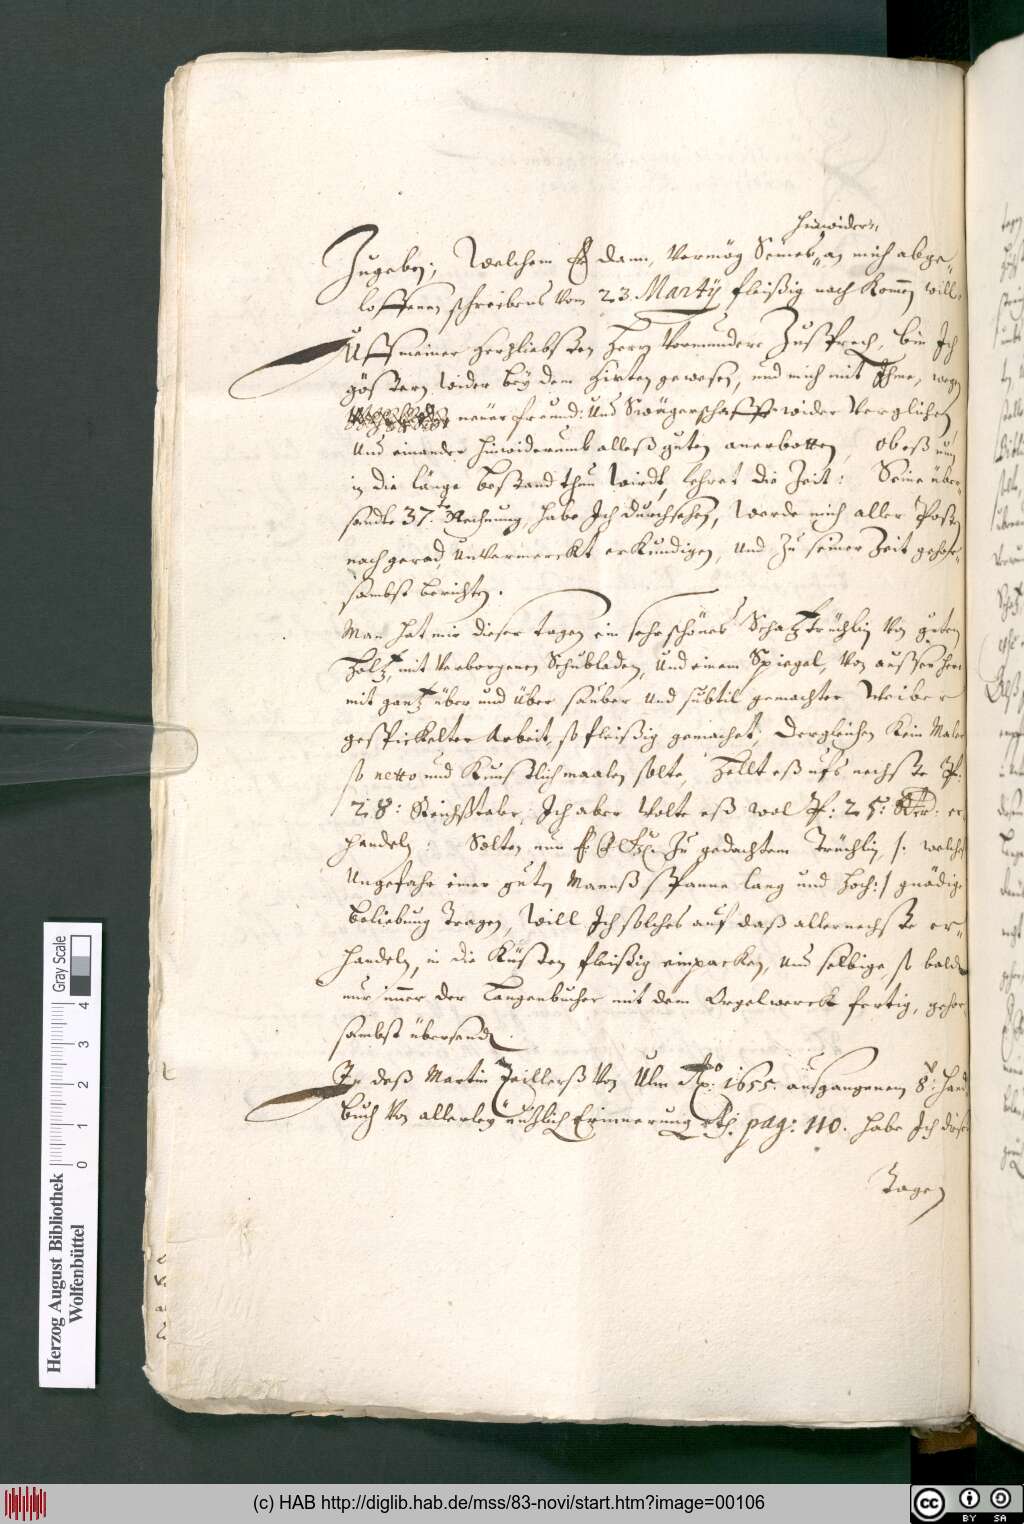 hinwiderr,
Zugeben; Welchem Er dann, Vermög Seines an mich abge„
loffenen schreibens Vom 23 Martÿ fleißig nach Kommen will.
Uff meiner herzliebsten Herrn Vormundere Zusprech, bin Ich
göstern wider beÿ dem Hirten gewesen, und mich mit Ihme, wegen
neüer freund: Und Swägerschafft wider Verglichen,
Und einander hinwiderumb alleß guten anerbotten, ob eß nun
in die länge bestand thun wirdt, lehret die Zeit: Seine über„
sandte 37.te Rechnung, habe Ich durchsehen, Werde mich aller Posten
nachgerad, unvermerckt erkundigen, und Zu seiner Zeit gehor„
sambst berichten.
Man hat mir dieser tagen ein sehr schönes Schatztrüchlin von gutem
Holtz, mit Verborgenen Schubladen, Und einem Spiegel, Von aussen her
mit gantz über und über sauber und subtil gemachter Weiber
gespickelter Arbeit, so fleißig gemachet, dergleichen kein Maler
so netto und Kunstlich maalen solte, hellt eß ufs nechste Pf:
28: Reichsstaler, Ich aber Wolte eß wol Pf: 25: Rtr: er
handeln: Solten nun E. F. G. Zu gedachtem Trüchlin /: welches
Ungefahr einer guten Mannß spanne lang und hoch:/ gnädige
beliebung tragen, will Ich solches auf daß allernechste er„
handeln, in die Küsten fleißig einpacken, und selbige, so balden
nur immer der Langenbucher mit dem Orgelwerck fertig, gehor
sambst übersenden.
In deß Martin Zeillerß Von Ulm Ao: 1655. ausgangenem 8.v: Hand
buch Von allerleÿ nuzlich Erinnerungen &c: pag: 110. habe Ich diser
Tagen
Herzog August Bibliothek
Wolfenbüttel
0 1 2 3 4
Gray Scale
(c) HAB http://diglib.hab.de/mss/83-novi/start.htm?image=00106
cc BY SA